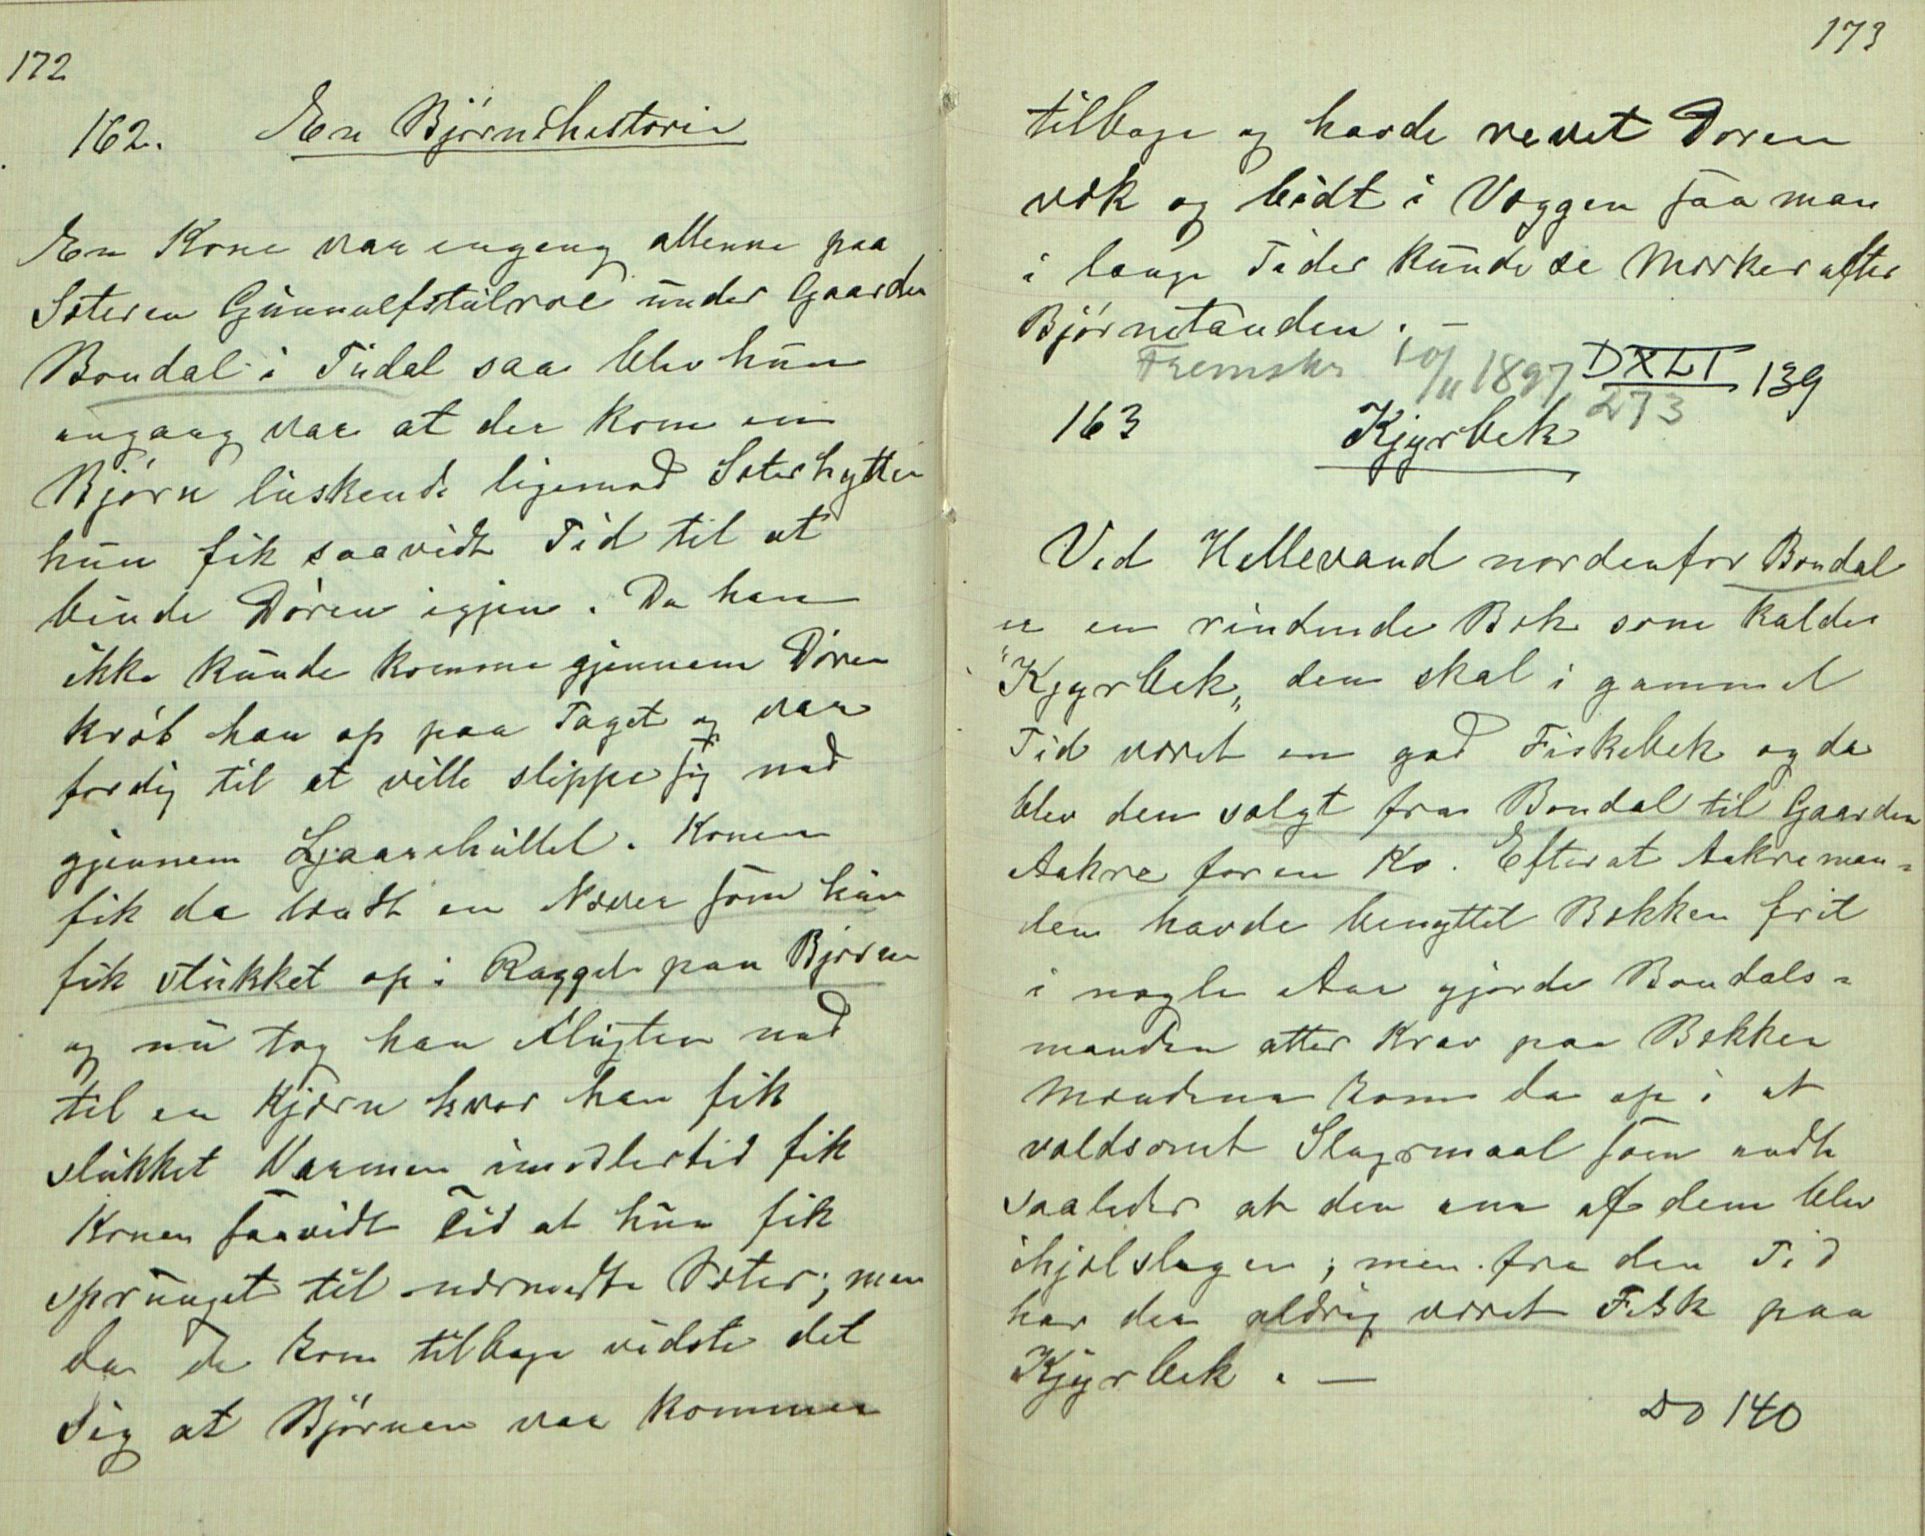 172
162. En Bjørnehistorie
En Kone var engang allene paa
Sæteren Gunnulfstulroe under Gaarden
Bondal i Tudal saa blev hun
engang var at der kom en
Bjørn luskende ligemod Sæterhytten
hun fik saavidt Tid til at
binde Døren igjen. Da han
ikke kunde komme gjennem Døren
krøb han op paa Taget og var
færdig til at ville slippe sig ned
gjennem Ljaarehullet. Konen
fik da tændt en Næver som hun
fik stukket op i Ragget paa Bjørnen
og nu tog han Flugten ned
til en Kjærn hvor han fik
slukket Varmen imedlertid fik
Konen saavidt Tid at hun fik
sprunget til nærmeste Sæter; men
da de kom tilbage vidste det
sig at Bjørnen var kommen
173
tilbage og havde revet Døren
væk og bidt i Væggen saa man
i lange Tider kunde se Mærker efter
Bjørnetanden. —
Fremskr 10/11 1897 DXLI 139
273
163 Kjyrbek
Ved Hellevand nordenfor Bondal
er en rindende Bæk som kaldes
"Kjyrbek„ den skal i gammel
Tid været en god Fiskebek og da
blev den solgt fra Bondal til Gaarden
Aakre for en Ko. Efter at Aakreman=
den havde benyttet Bækken frit
i nogle Aar gjorde Bondals=
manden atter Krav paa Bækken
Mændene kom da op i et
voldsomt Slagsmaal som endte
saaledes at den ene af dem blev
ihjelslagen; men fra den Tid
har der aldrig været Fisk paa
Kjyrbek. —
Do 140